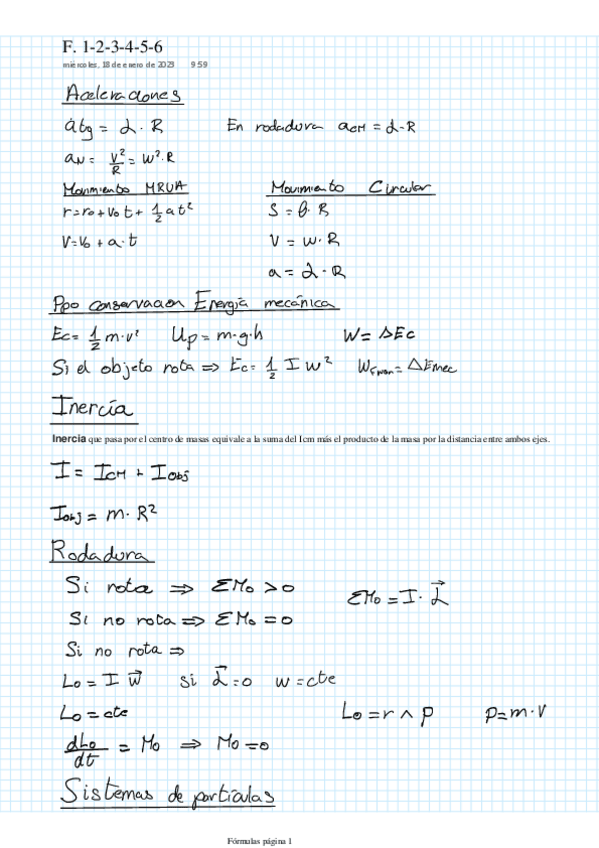 F. 1-2-3-4-5-6
miércoles, 18 de enero de 2023 9:59
Aceleraciones
atg = α · R En rodadura aCM = α · R
aN = V²/R = W² · R
Movimiento MRUA Movimiento Circular
r = r₀ + V₀ t + 1/2 a t² S = θ · R
V = V₀ + a · t V = W · R
a = α · R
Ppo conservacion Energía mecánica
Ec = 1/2 m · v² Up = m · g · h W = ΔEc
Si el objeto rota ⇒ Ec = 1/2 I W² WFnon = ΔEmec
Inercía
Inercia que pasa por el centro de masas equivale a la suma del Icm más el producto de la masa por la distancia entre ambos ejes.
I = ICM + Iobj
Iobj = m · R²
Rodadura
Si rota ⇒ ΣM₀ > 0 ΣM₀ = I · α⃗
Si no rota ⇒ ΣM₀ = 0
Si no rota ⇒
L₀ = I W⃗ si α⃗ = 0 w = cte
L₀ = cte L₀ = r ∧ p p = m · V
dL₀/dt = M₀ ⇒ M₀ = 0
Sistemas de partículas
Fórmulas página 1